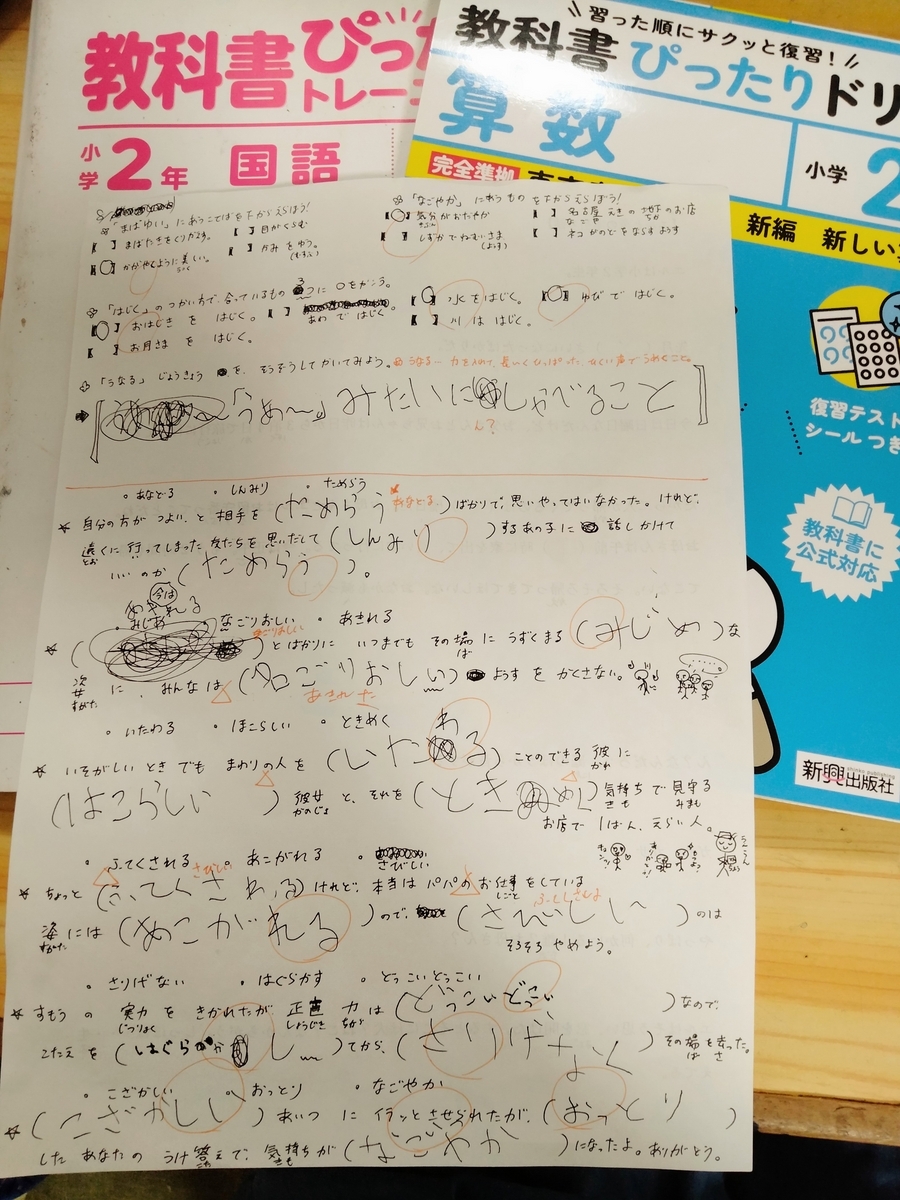 教科書ぴっ
トレー
小学2年 国語
習った順にサクッと復習!
教科書ぴったりドリ
算数
完全準拠
小学 2
新編 新しい
復習テスト
シールつき
教科書に
公式対応
新興出版社
「まばゆい」にあうことばを下からえらぼう!
【 】まばたきをくりかえす。 【 】目がくらむ
【○】かがやくように美しい。 【 】かみをゆう。
「なごやか」にあうものを下からえらぼう!
【○】気分がおだやか 【 】名古屋えきの地下のお店
【 】しずかでねむいさま 【 】ネコがのどをならすようす
「はじく」のつかい方で、合っているもの3つに○をかこう。
【○】おはじきをはじく。 【 】あわではじく。 【○】水をはじく。 【○】ゆびではじく。
【 】お月さまをはじく。 【 】川ははじく。
「うなる」じょうきょうを、そうぞうしてかいてみよう。 うなる…力を入れて、長いくひっぱった、ひくい声でうめくこと。
「うぁ〜。」みたいにしゃべること
ん?
・あなどる ・しんみり ・ためらう
★自分の方がつよい、と相手を(ためらう)ばかりで、思いやってはいなかった。けれど、
あなどる
遠くに行ってしまった友だちを思いだして(しんみり)するあの子に話しかけて
いいのか(ためらう)。
今は
・みじめ ・なごりおしい ・あきれる
★( )とばかりにいつまでもその場にうずくまる(みじめ)な
次女に、みんなは(名ごりおしい)ようすをかくさない。
あきれた
・いたわる ・ほこらしい ・ときめく
★いそがしいときでもまわりの人を(いたわる)ことのできる彼に
(ほこらしい)彼女と、それを(ときめく)気持ちで見守る
お店で1ばん、えらい人。
・ふてくされる ・あこがれる ・さびしい
さびしい
★ちょっと(ふてくされる)けれど、本当はパパのお仕事をしている
姿には(あこがれる)ので、(さびしい)のは
そろそろやめよう。
・さりげない ・はぐらかす ・どっこいどっこい
★すもうの実力をきかれたが正直力は(どっこいどっこい)なので、
こたえを(はぐらかし)てから、(さりげなく)その場を去った。
・こざかしい ・おっとり ・なごやか
★(こざかしい)あいつにイラッとさせられたが、(おっとり)
したあなたのうけ答えで、気持ちが(なごやか)になったよ。ありがとう。